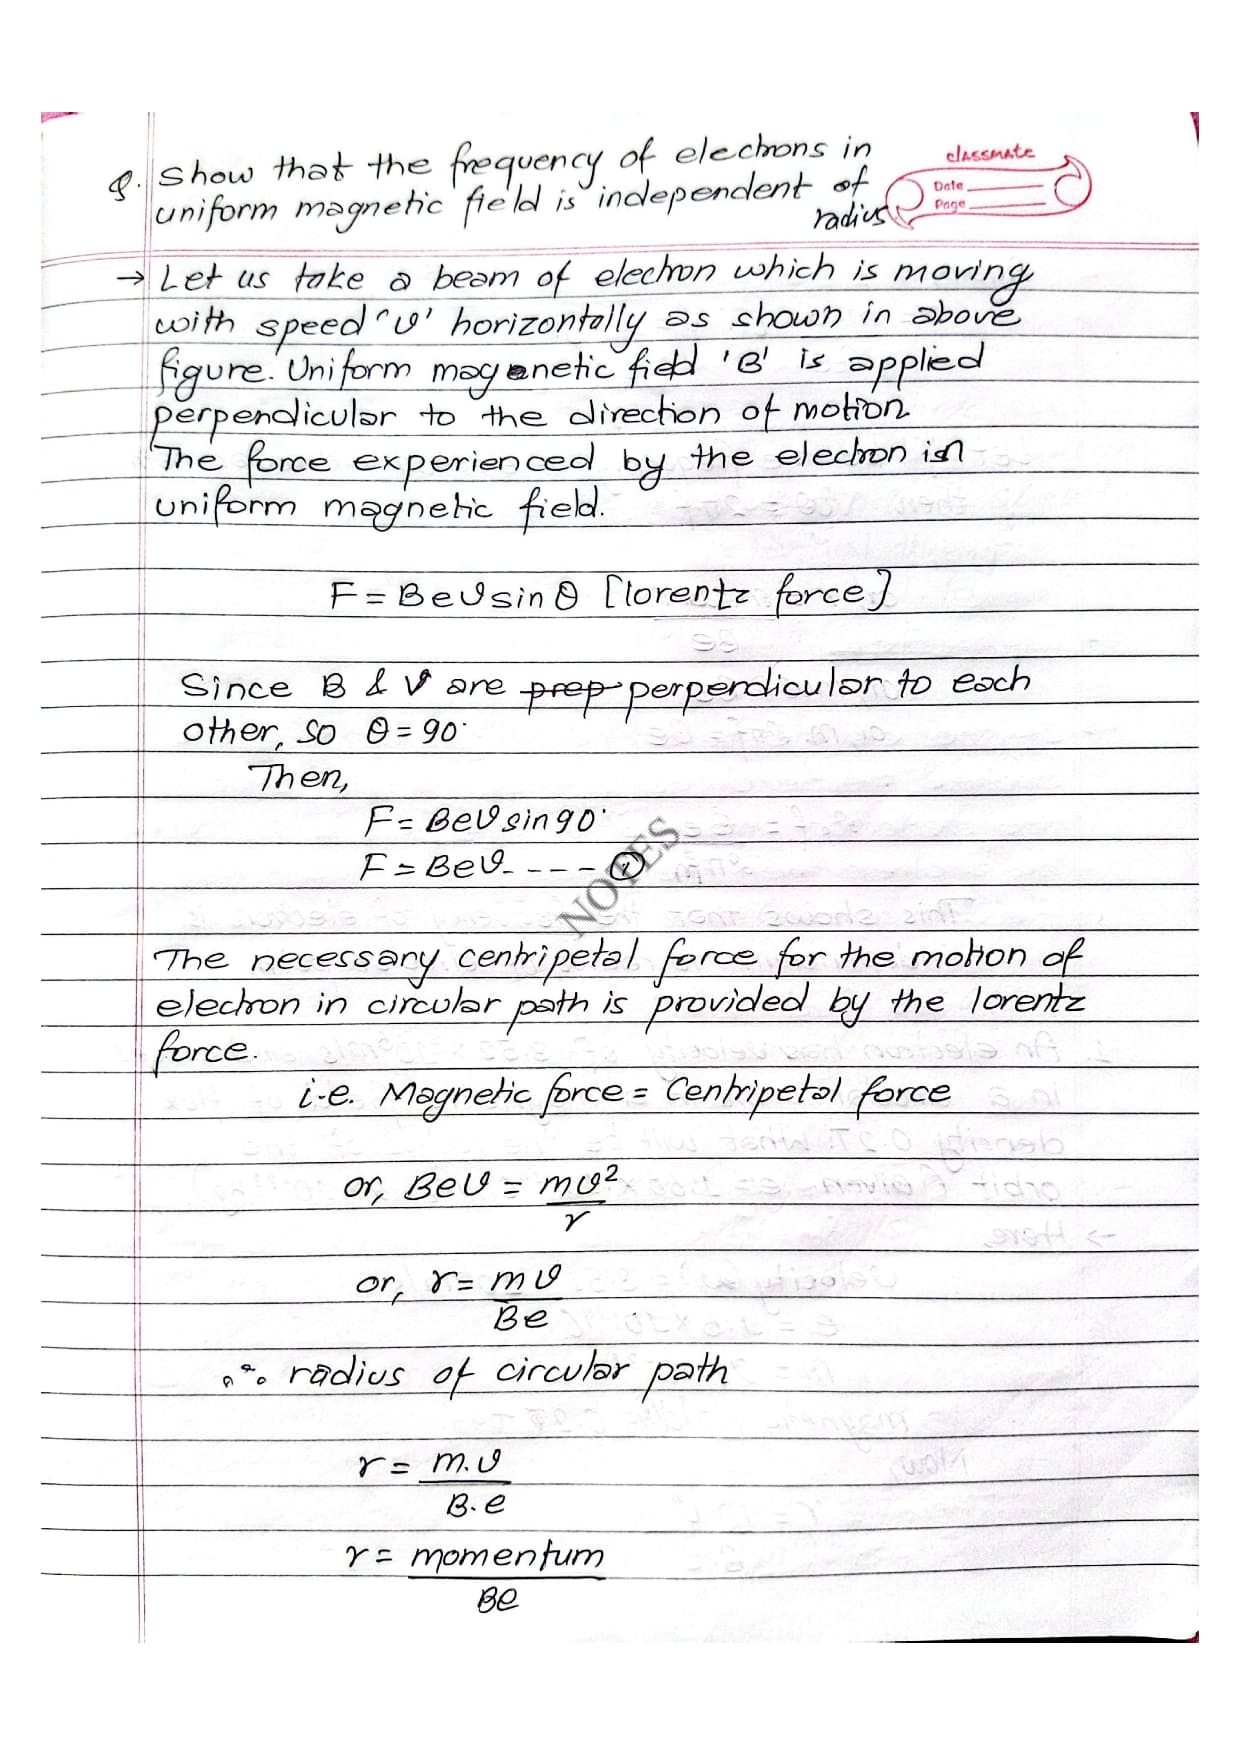 Q. Show that the frequency of electrons in
uniform magnetic field is independent of
radius.
classmate
Date
Page
→ Let us take a beam of electron which is moving
with speed 'v' horizontally as shown in above
figure. Uniform magnetic field 'B' is applied
perpendicular to the direction of motion
The force experienced by the electron in
uniform magnetic field.
F = Bev sin θ [lorentz force]
Since B & V are prep perpendicular to each
other, so θ = 90°
Then,
F = Bev sin 90°
F = Bev - - - -
NOTES
The necessary centripetal force for the motion of
electron in circular path is provided by the lorentz
force.
i.e. Magnetic force = Centripetal force
or, Bev = mv²
r
or, r = mv
Be
∴ radius of circular path
r = m.v
B.e
r = momentum
Be